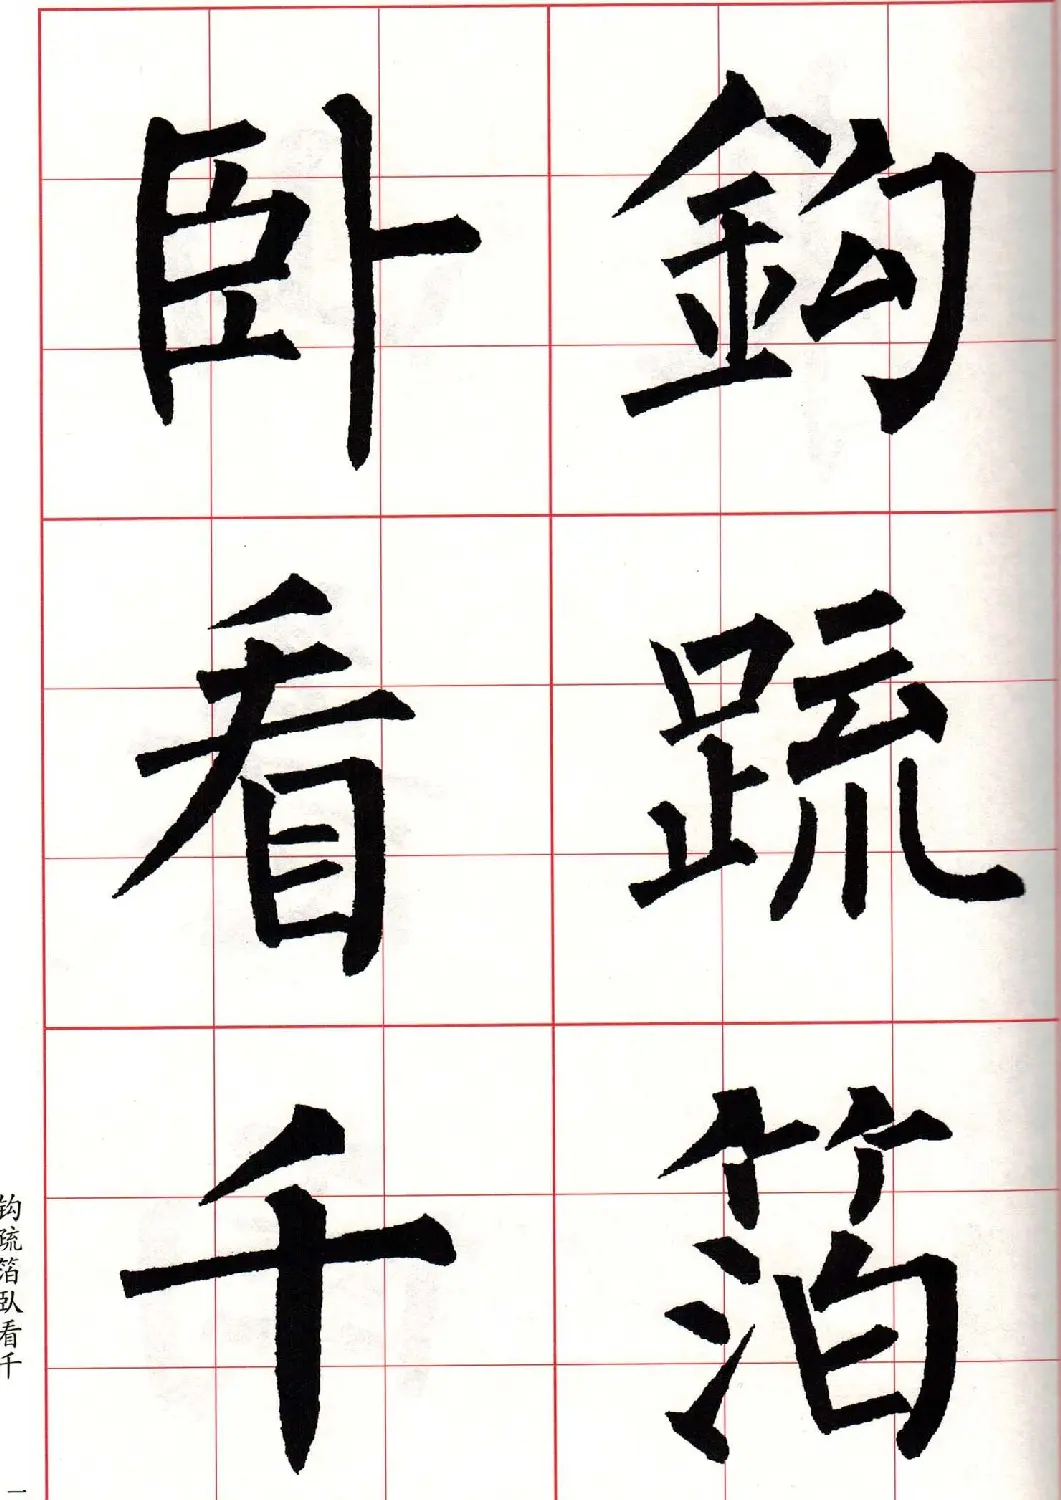 鈎䟽箔
卧看千
钩疏箔卧看千
一